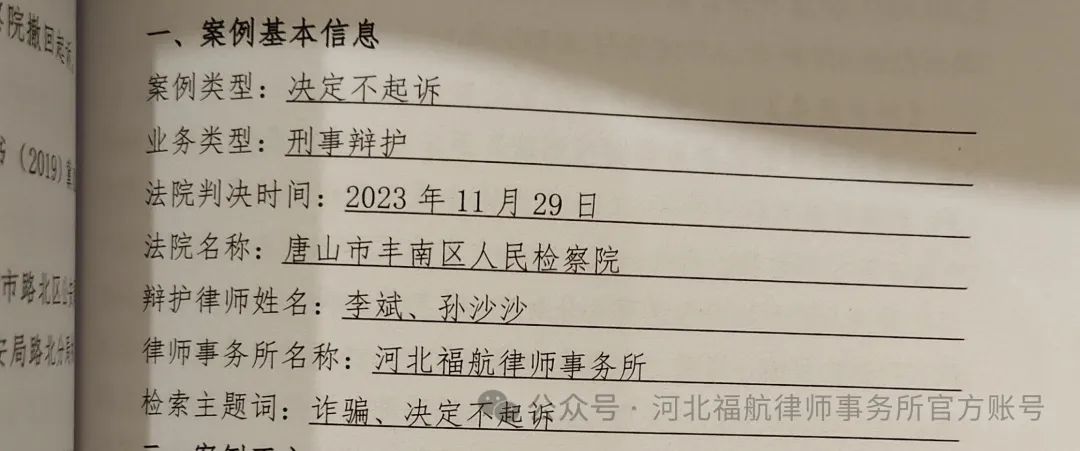 院撤回起诉
一、案例基本信息
案例类型：决定不起诉
业务类型：刑事辩护
（2019）
法院判决时间：2023 年 11 月 29 日
法院名称：唐山市丰南区人民检察院
市路北区公安
辩护律师姓名：李斌、孙沙沙
安局路北分局
律师事务所名称：河北福航律师事务所
检索主题词：诈骗、决定不起诉
公众号·河北福航律师事务所官方账号